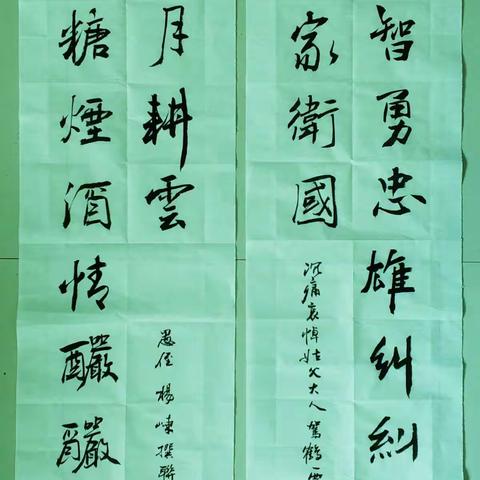 智勇忠雄糾糾
家衛國
沉痛哀悼姑父大人駕鶴西
糖煙酒情釅釅
月耕雲
愚侄楊崠撰聯